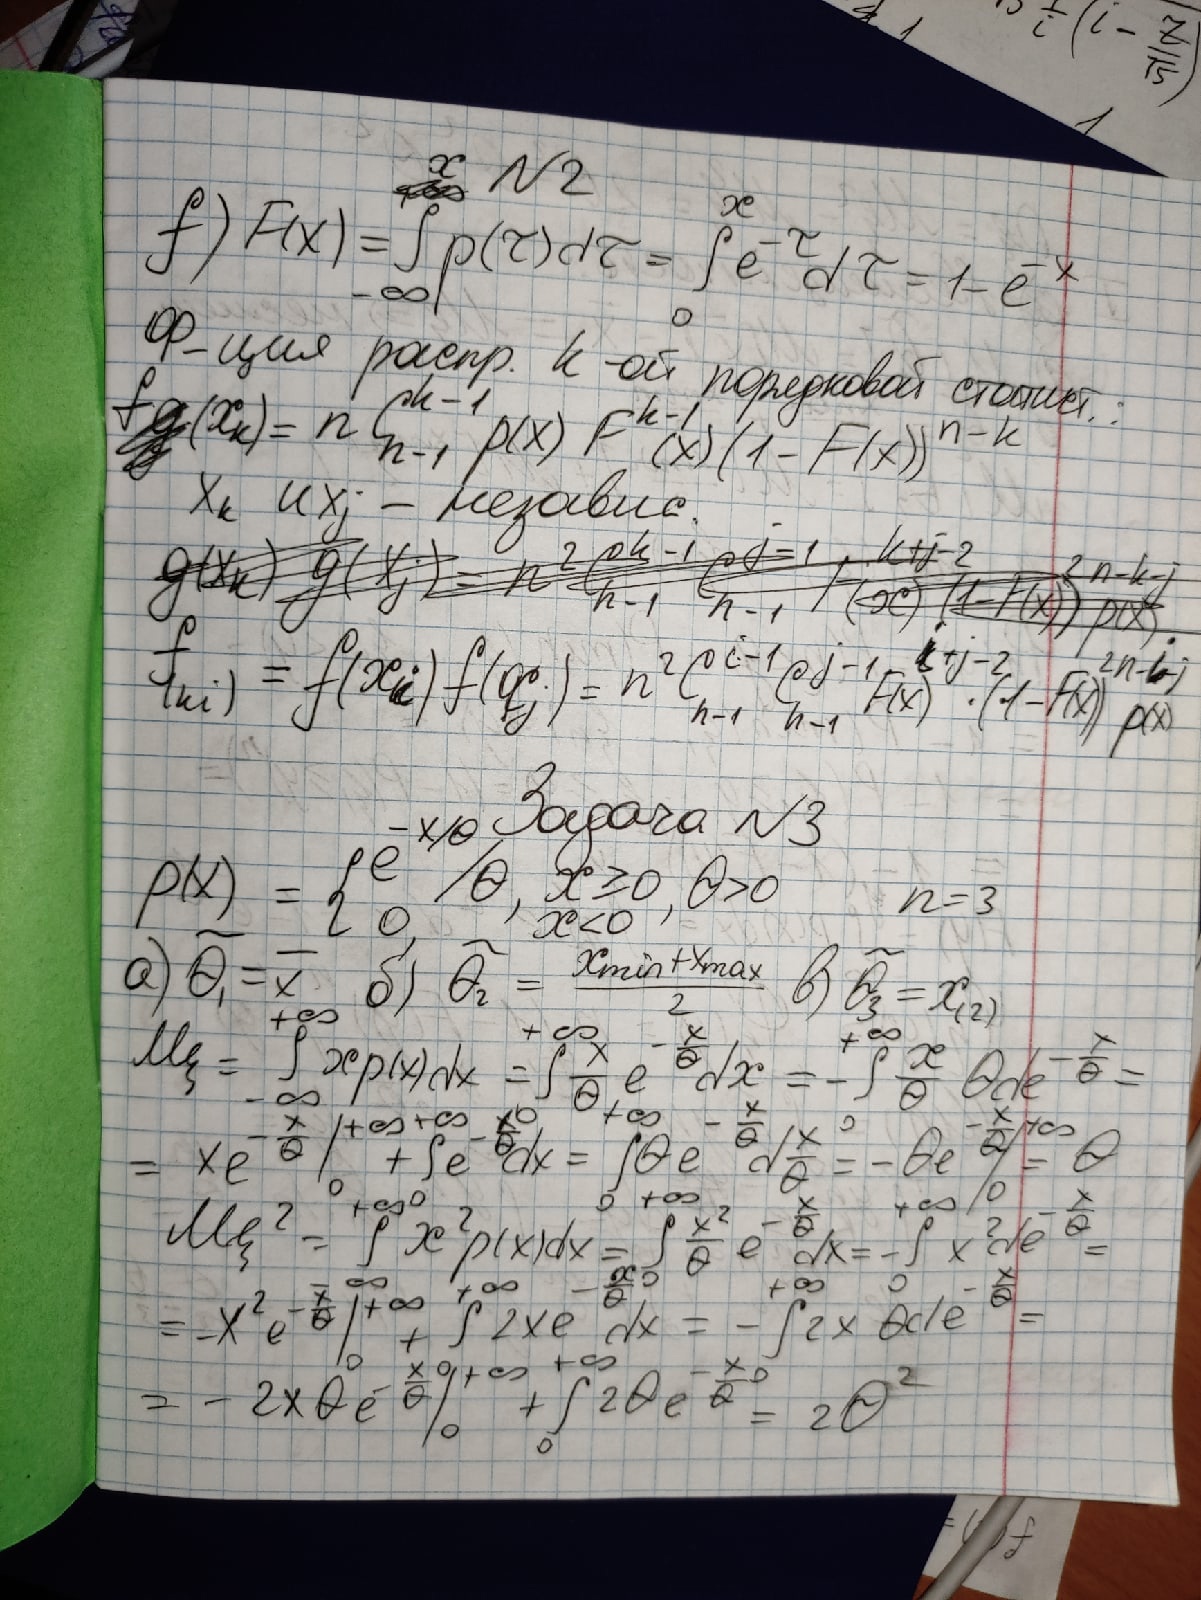 N2
f) F(x) = ∫_{-∞}^{x} p(τ)dτ = ∫_{0}^{x} e^{-τ}dτ = 1-e^{-x}
Ф-ция распр. k-ой порядковой статист.:
f(x_k) = n C_{n-1}^{k-1} p(x) F^{k-1}(x)(1-F(x))^{n-k}
x_k и x_j - независ.
g(x_k) g(x_j) = n² C_{n-1}^{k-1} C_{n-1}^{j-1} F^{k+j-2}(x) (1-F(x))^{2n-k-j} p(x)
f_{(ki)} = f(x_i) f(x_j) = n² C_{n-1}^{i-1} C_{n-1}^{j-1} F(x)^{i+j-2} · (1-F(x))^{2n-k-j} p(x)
Задача N3
p(x) = { e^{-x/θ}/θ, x≥0, θ>0 n=3
0, x<0
а) θ̃₁ = x̄ б) θ̃₂ = (xmin+xmax)/2 в) θ̃₃ = x_{(2)}
Mξ = ∫_{-∞}^{+∞} xp(x)dx = ∫_{0}^{+∞} x/θ e^{-x/θ}dx = -∫_{0}^{+∞} x/θ θde^{-x/θ} =
= xe^{-x/θ}|_{0}^{+∞} + ∫_{0}^{+∞} e^{-x/θ}dx = ∫_{0}^{+∞} θe^{-x/θ} d x/θ = -θe^{-x/θ}|_{0}^{+∞} = θ
Mξ² = ∫_{-∞}^{+∞} x²p(x)dx = ∫_{0}^{+∞} x²/θ e^{-x/θ}dx = -∫_{0}^{+∞} x²de^{-x/θ} =
= -x²e^{-x/θ}|_{0}^{+∞} + ∫_{0}^{+∞} 2xe^{-x/θ}dx = -∫_{0}^{+∞} 2x θde^{-x/θ} =
= -2xθe^{-x/θ}|_{0}^{+∞} + ∫_{0}^{+∞} 2θe^{-x/θ} = 2θ²